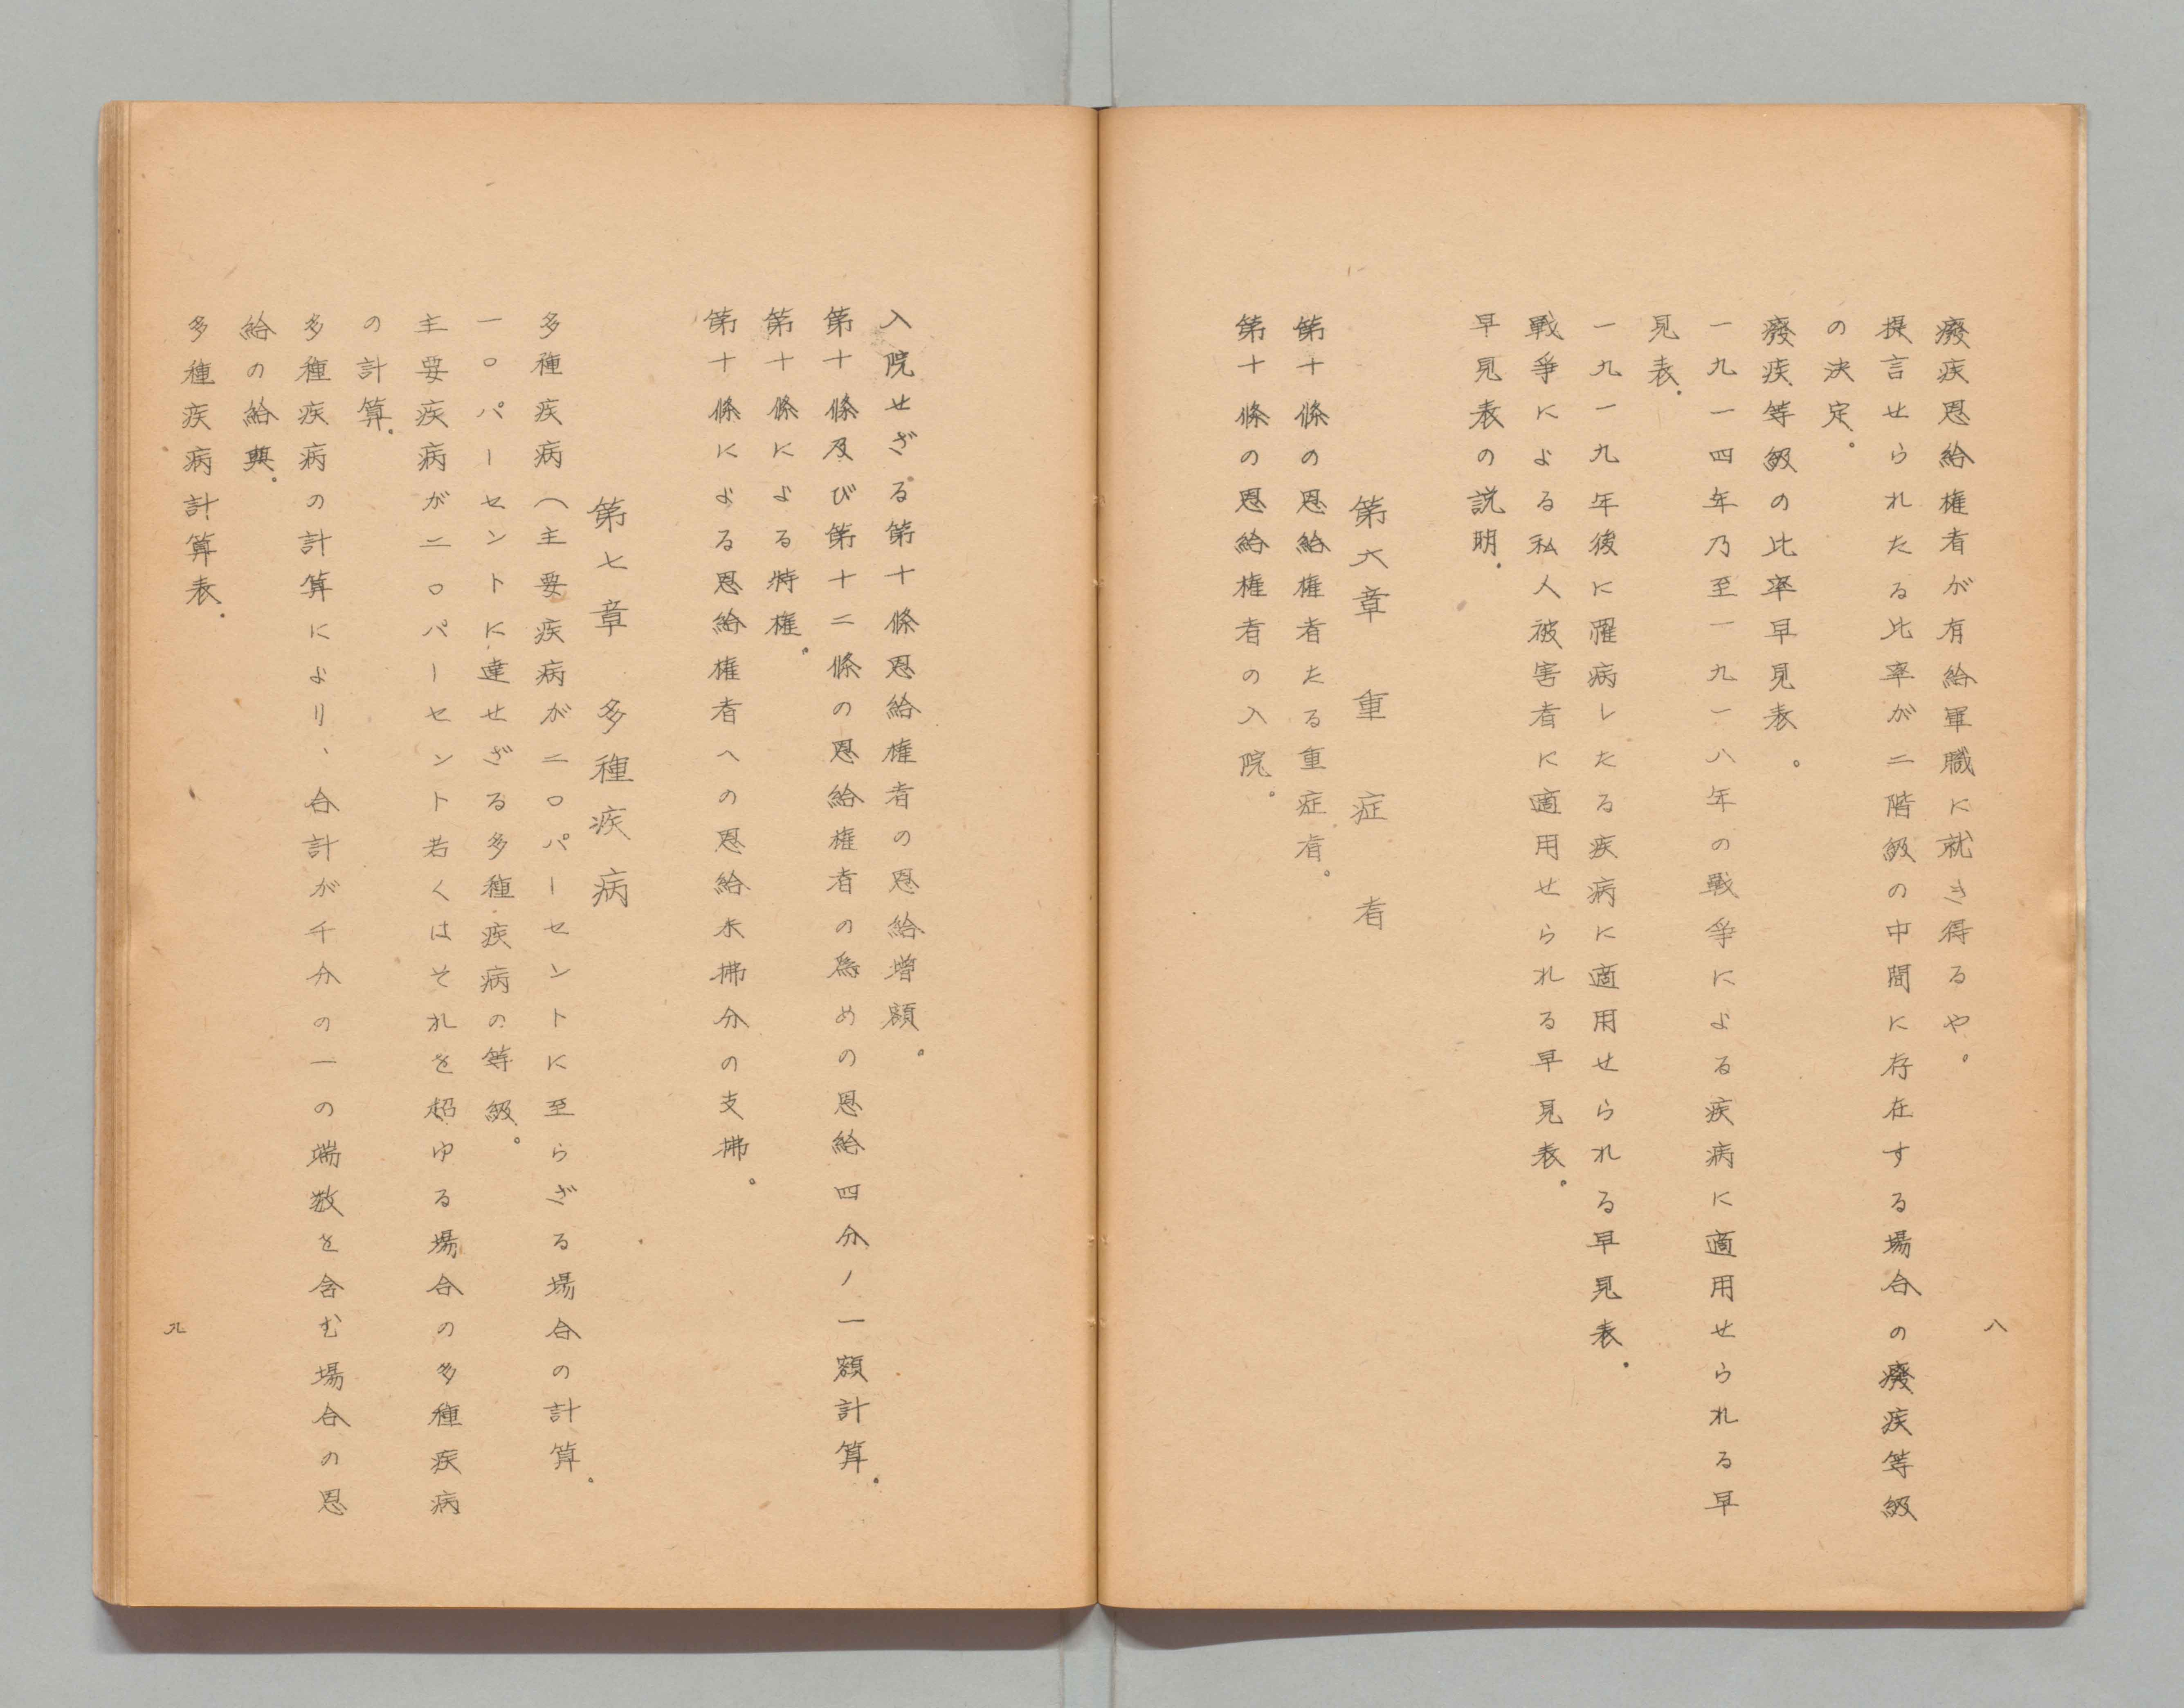 廢疾恩給權者が有給軍職に就き得るや。
提言せられたる比率が二階級の中間に存在する場合の廢疾等級
の決定。
廢疾等級の比率早見表。
一九一四年乃至一九一八年の戰爭による疾病に適用せられる早
見表.
一九一九年後に罹病したる疾病に適用せられる早見表.
戰爭による私人被害者に適用せられる早見表。
早見表の説明.
第六章 重症者
第十條の恩給權者たる重症者。
第十條の恩給權者の入院。
八
入院せざる第十條恩給權者の恩給増額。
第十條及び第十二條の恩給權者の爲めの恩給四分ノ一額計算.
第十條による特權。
第十條による恩給權者への恩給未拂分の支拂。
第七章 多種疾病
多種疾病(主要疾病が二〇パーセントに至らざる場合の計算.
一〇パーセントに達せざる多種疾病の等級。
主要疾病が二〇パーセント若くはそれを超ゆる場合の多種疾病
の計算.
多種疾病の計算により、合計が千分の一の端数を含む場合の恩
給の給與.
多種疾病計算表.
九